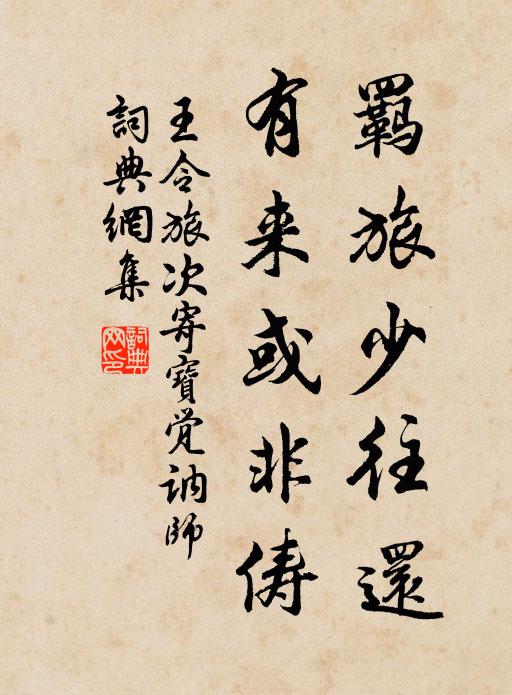 羈旅少往還
有来或非俦
王令旅次寄寶覚訥師
詞典網集
詞典网印